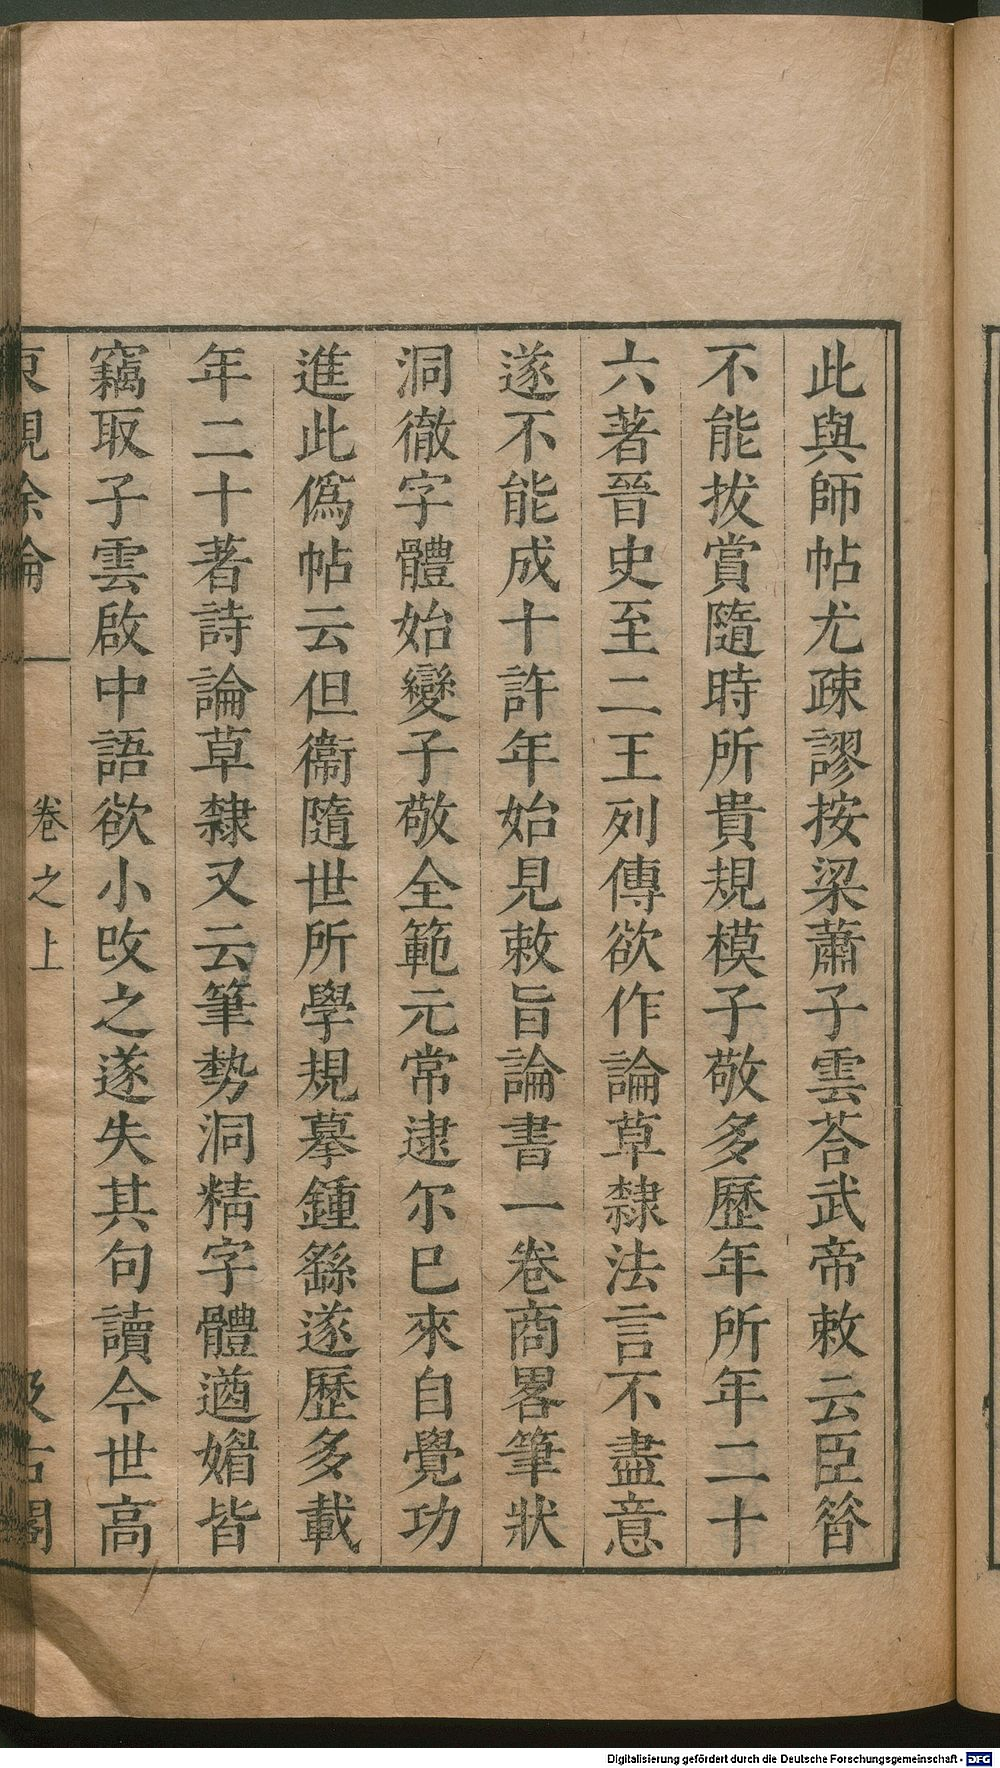 此與師帖尤疎謬按梁蕭子雲荅武帝敕云臣昝
不能拔賞隨時所貴規模子敬多歷年所年二十
六著晉史至二王列傳欲作論草隸法言不盡意
遂不能成十許年始見敕旨論書一卷商畧筆狀
洞徹字體始變子敬全範元常逮尔巳來自覺功
進此僞帖云但衞隨世所學規摹鍾繇遂歷多載
年二十著詩論草隸又云筆勢洞精字體遒媚皆
竊取子雲啟中語欲小攺之遂失其句讀今世高
東觀余論
卷之上
汲古閣
Digitalisierung gefördert durch die Deutsche Forschungsgemeinschaft - DFG